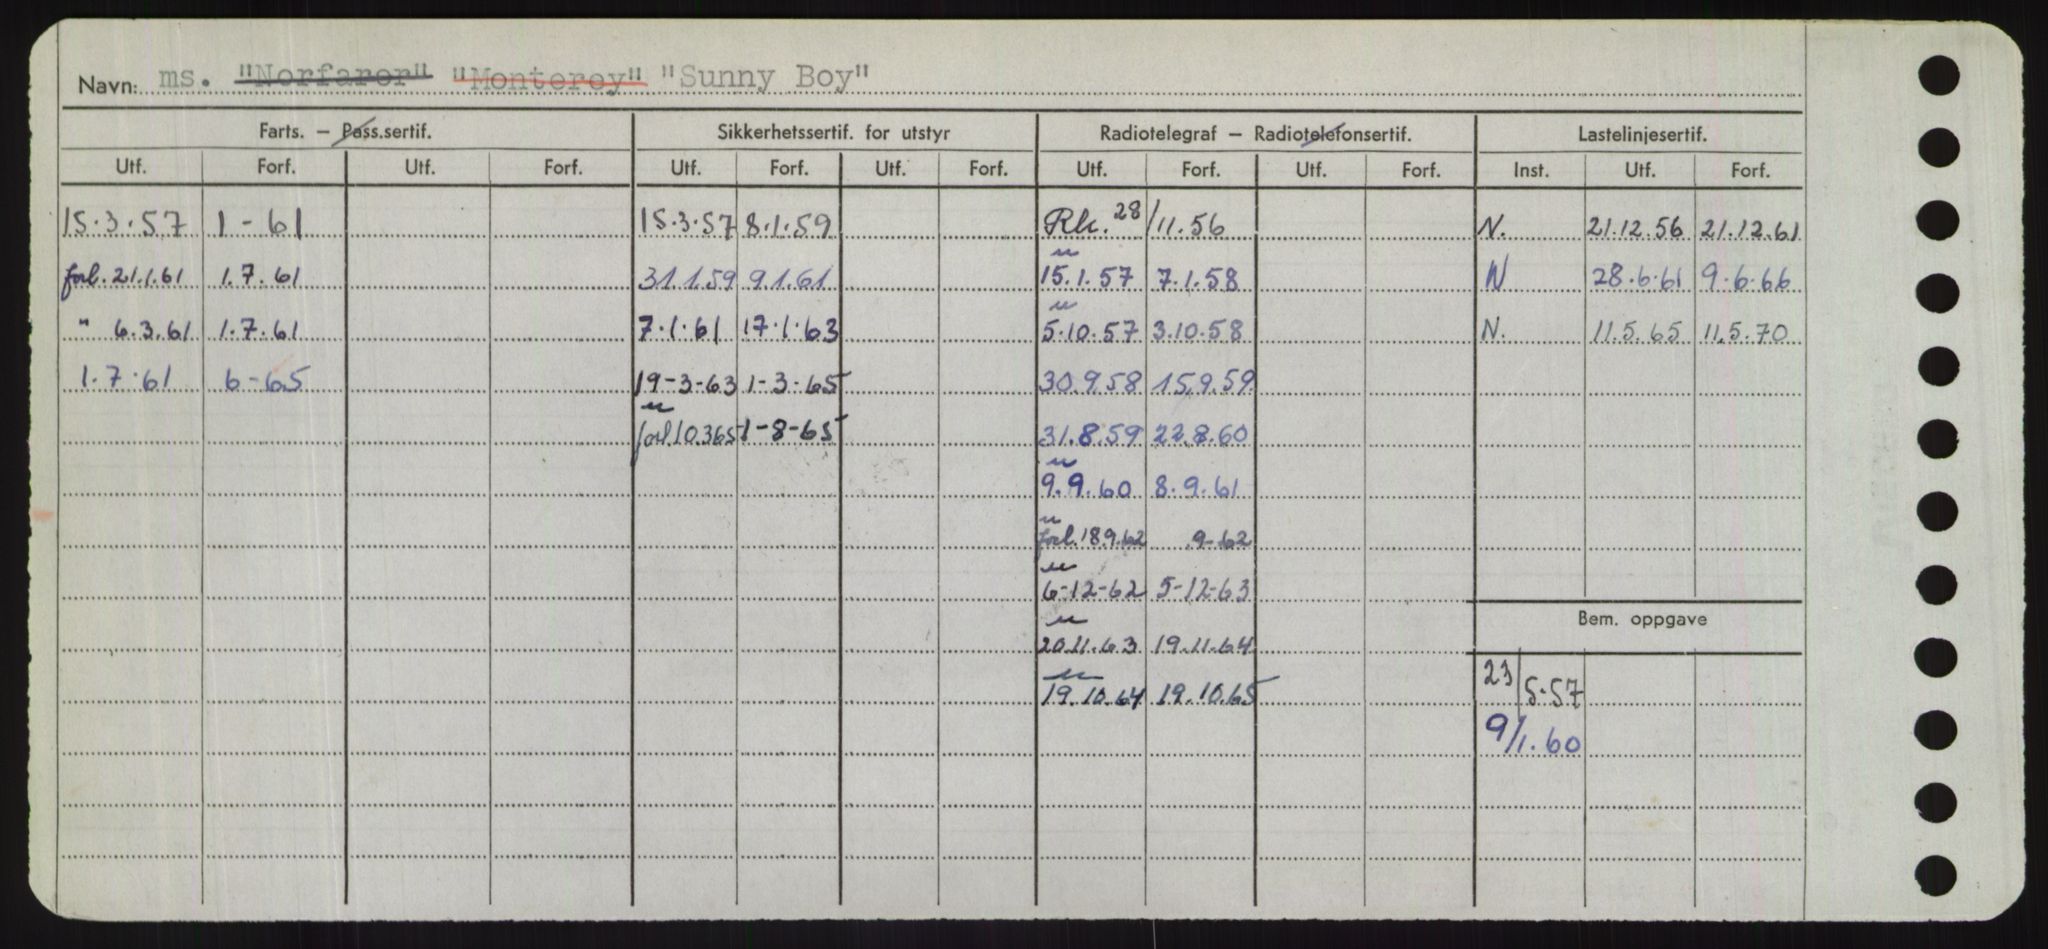 Navn: ms. "Norfaror" "Monterey" "Sunny Boy"
Farts. – Pass.sertif. Sikkerhetssertif. for utstyr Radiotelegraf – Radiotelefonsertif. Lastelinjesertif.
Utf. Forf. Utf. Forf. Utf. Forf. Utf. Forf. Utf. Forf. Utf. Forf. Inst. Utf. Forf.
15.3.57 1-61 15.3.57 8.1.59 Rk. 28/11.56 N. 21.12.56 21.12.61
forl. 21.1.61 1.7.61 31.1.59 9.1.61 " 15.1.57 7.1.58 N 28.6.61 9.6.66
" 6.3.61 1.7.61 7.1.61 17.1.63 " 5.10.57 3.10.58 N. 11.5.65 11.5.70
1.7.61 6-65 19-3-63 1-3-65 30.9.58 15.9.59
" forl. 10.3.65 1-8-65 31.8.59 22.8.60
" 9.9.60 8.9.61
" forl. 18.9.62 .9-62
" 6-12-62 5-12-63
Bem. oppgave
" 20.11.63 19.11.64
" 19.10.64 19.10.65 23/5.57
9/1.60